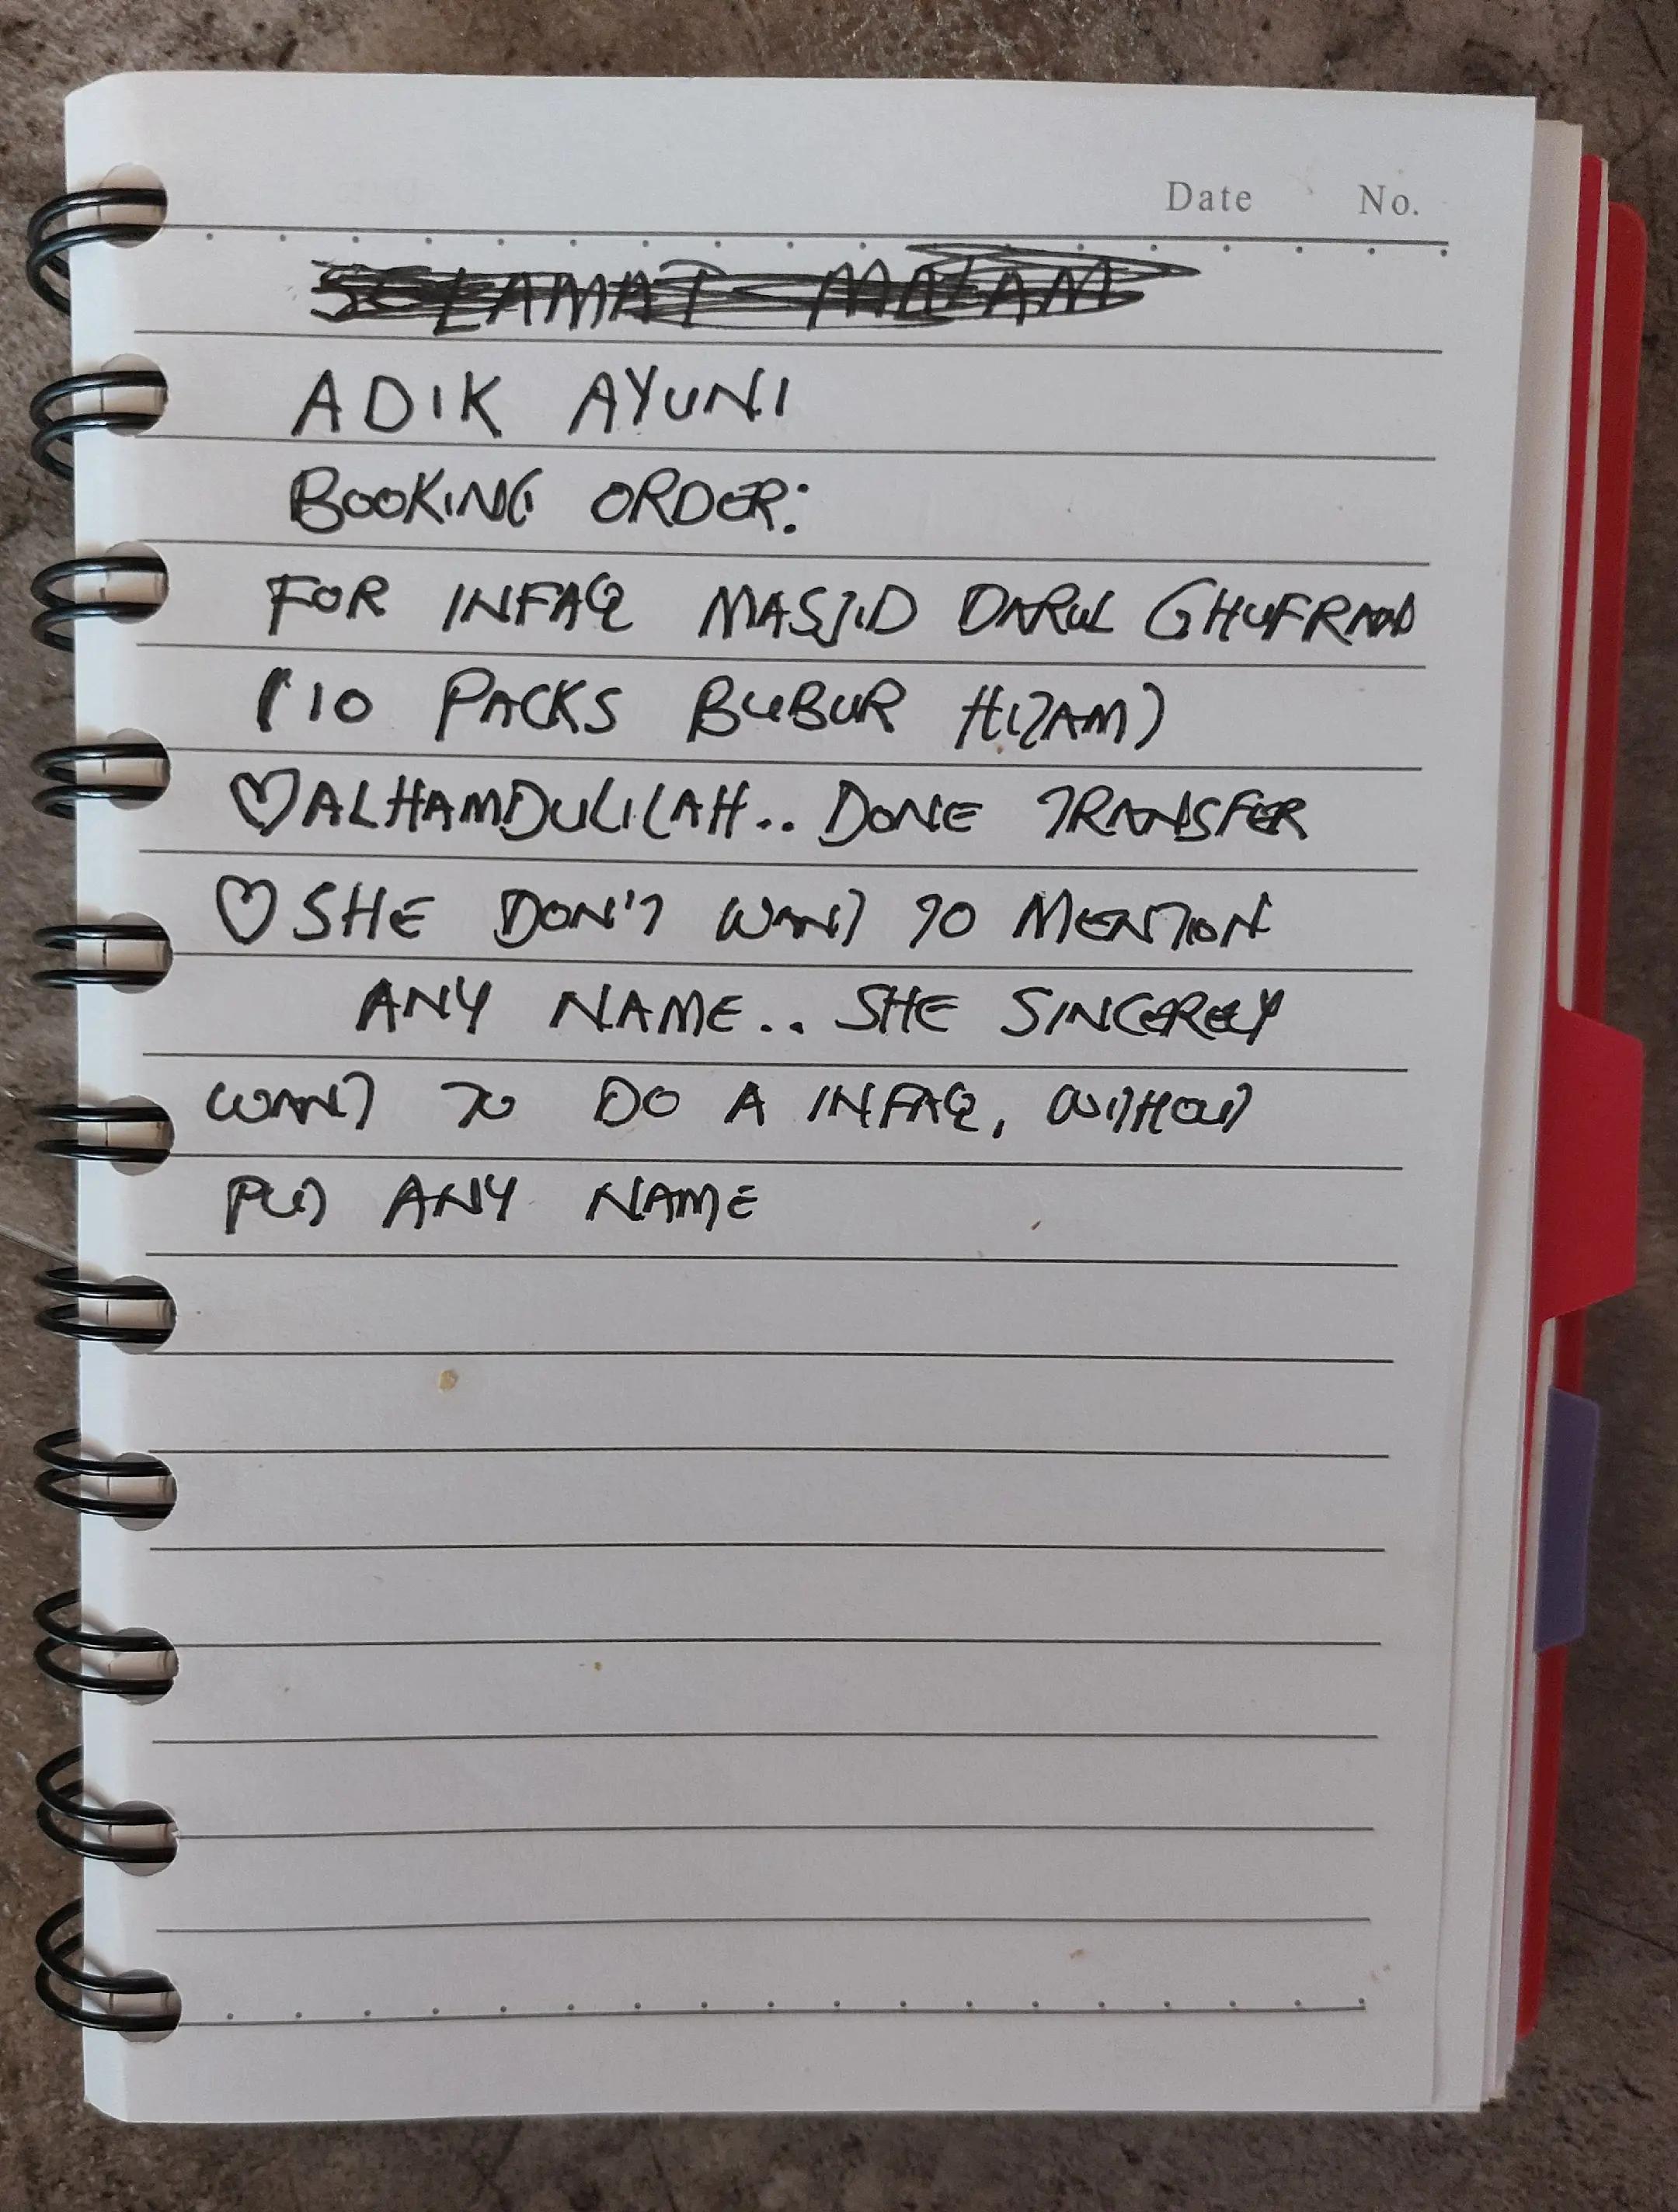 Date No.
SELAMAT MALAM
ADIK AYUNI
BOOKING ORDER:
FOR INFAQ MASJID DARUL GHUFRAAN
(10 PACKS BUBUR HITAM)
♡ALHAMDULILAH.. DONE TRANSFER
♡SHE DON'T WANT TO MENTION
ANY NAME.. SHE SINCERELY
WANT TO DO A INFAQ, WITHOUT
PUT ANY NAME